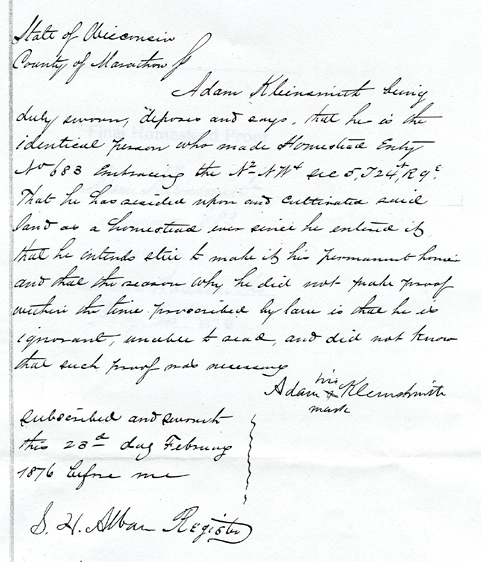 State of Wisconsin
County of Marathon
Adam Kleinsmith being
duly sworn, deposes and says, that he is the
identical person who made Homestead Entry
No 683 Embracing the N2 NW4 Sec 5, T24, R9E.
That he has resided upon and cultivated said
land as a homestead ever since he entered it,
that he intends still to make it his permanent home
and that the reason why he did not make proof
within the time prescribed by law is that he is
ignorant, unable to read, and did not know
that such proof was necessary
his
Adam x Kleinsmith
mark
subscribed and sworn to
this 23d day February
1876 before me
S. H. Alban Register